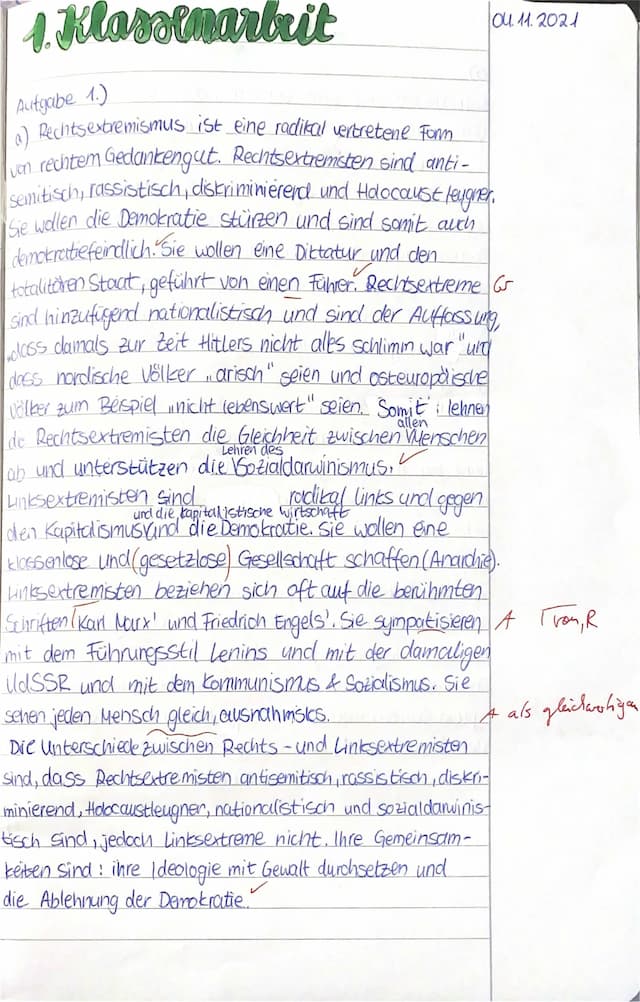 1. Klassenarbeit
04.11.2021
Aufgabe 1.)
a) Rechtsextremismus ist eine radikal vertretene Form
von rechtem Gedankengut. Rechtsextremisten sind anti-
semitisch, rassistisch, diskriminierend und Holocaust leugner.
Sie wollen die Demokratie stürzen und sind somit auch
demokratiefeindlich. Sie wollen eine Diktatur und den
totalitären Staat, geführt von einen Führer. Rechtsextreme
Gr
sind hinzufügend nationalistisch und sind der Auffassung,
„dass damals zur Zeit Hitlers nicht alles schlimm war" und
dass nordische Völker „arisch" seien und osteuropäische
Völker zum Beispiel „nicht lebenswert" seien. Somit lehnen
allen
die Rechtsextremisten die Gleichheit zwischen Menschen
Lehren des
ab und unterstützen die Sozialdarwinismus.
Linksextremisten sind radikal links und gegen
und die kapitalistische Wirtschaft
den Kapitalismus und die Demokratie. Sie wollen eine
klassenlose und (gesetzlose) Gesellschaft schaffen (Anarchie).
Linksextremisten beziehen sich oft auf die berühmten
Schriften Karl Marx' und Friedrich Engels'. Sie sympatisieren
A von, R
mit dem Führungsstil Lenins und mit der damaligen
UdSSR und mit dem Kommunismus & Sozialismus. Sie
sehen jeden Mensch gleich, ausnahmslos.
A als gleichwertigen
Die Unterschiede zwischen Rechts- und Linksextremisten
sind, dass Rechtsextremisten antisemitisch, rassistisch, diskri-
minierend, Holocaustleugner, nationalistisch und sozialdarwinis-
tisch sind, jedoch Linksextreme nicht. Ihre Gemeinsam-
keiten sind: ihre Ideologie mit Gewalt durchsetzen und
die Ablehnung der Demokratie.